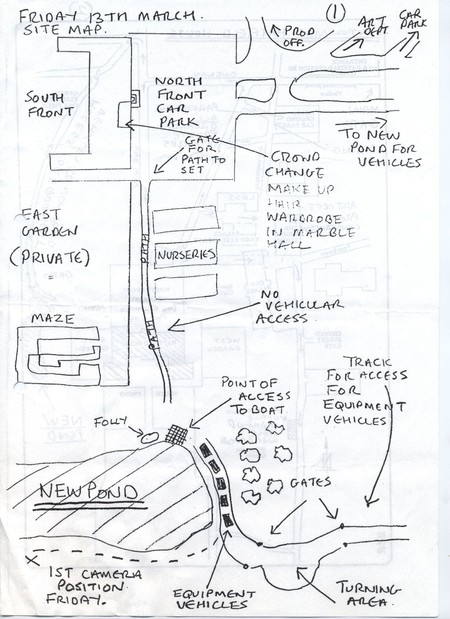 FRIDAY 13TH MARCH.
SITE MAP.
1
PROD
OFF.
ART
DEPT
CAR
PARK
SOUTH
FRONT
NORTH
FRONT
CAR
PARK
TO NEW
POND FOR
VEHICLES
GATE
FOR
PATH TO
SET
CROWD
CHANGE
MAKE UP
HAIR
WARDROBE
IN MARBLE
HALL
EAST
GARDEN
(PRIVATE)
PATH
NURSERIES
NO
VEHICULAR
ACCESS.
PATH
MAZE
TRACK
FOR ACCESS
FOR
EQUIPMENT
VEHICLES
POINT OF
ACCESS
TO BOAT
FOLLY
GATES
NEW POND
X
1ST CAMERA
POSITION
FRIDAY.
EQUIPMENT
VEHICLES
TURNING
AREA.